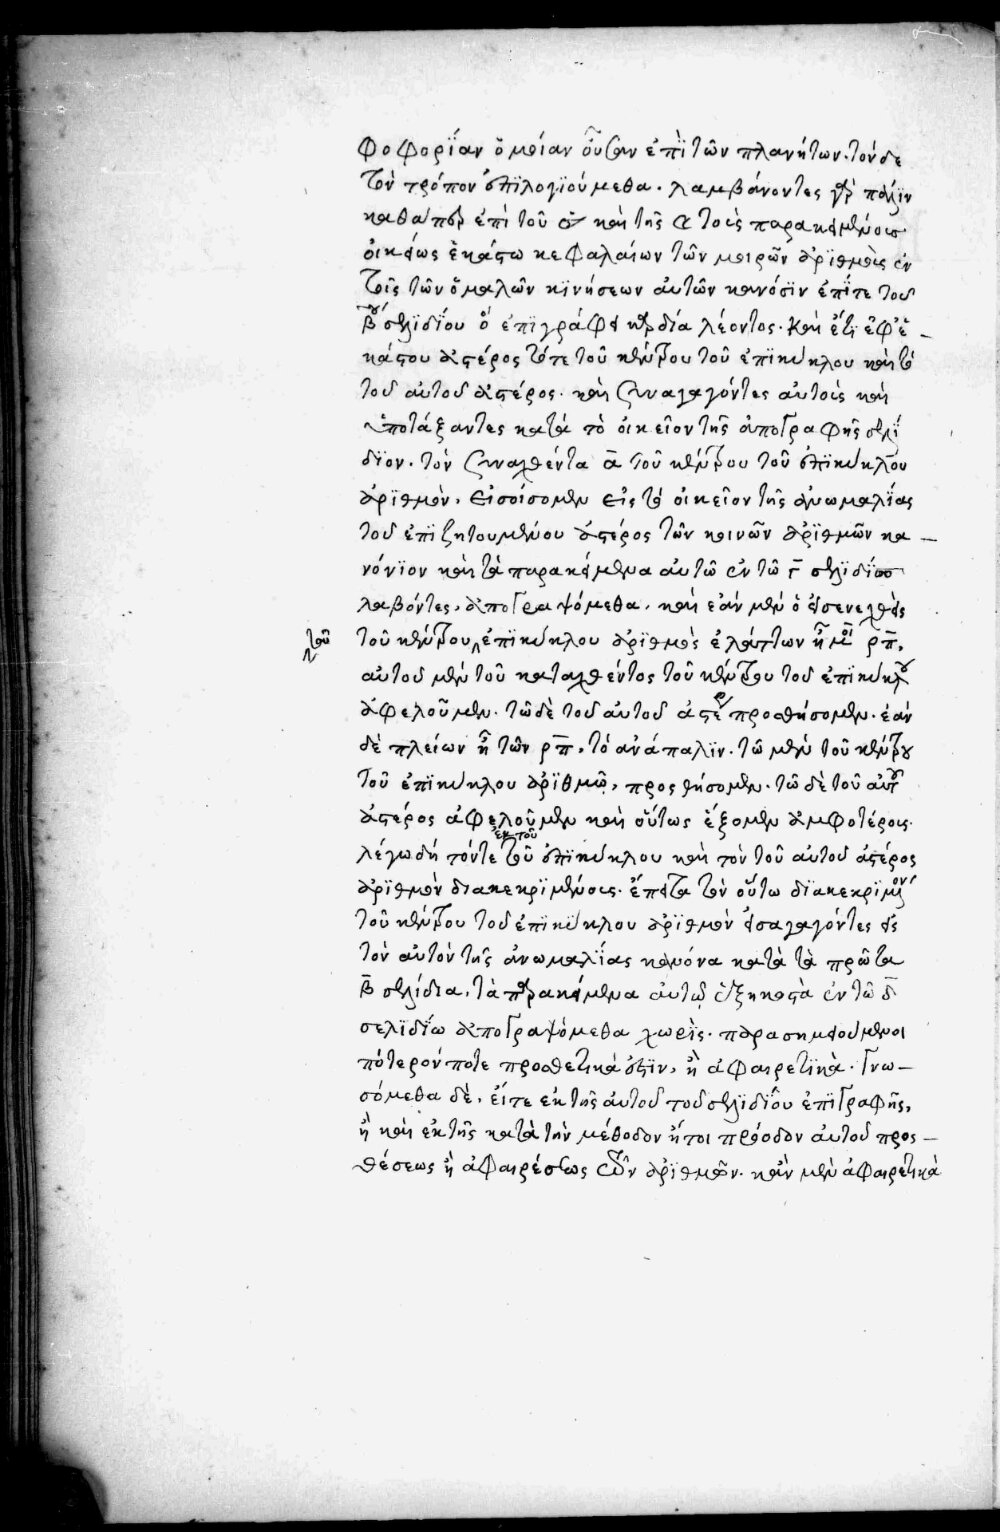 φοφορΐαν ὁμοίαν οὖσαν ἐπῒ τῶν πλανήτων. τόνδε
τὸν τρόπον ἐπϊλογϊούμεθα. λαμβάνοντες γὰρ πάλϊν
καθάπερ ἐπὶ τοῦ καὶ τῆς τοὺς παρακειμένους
οἰκείως ἑκάστω κεφαλαίων τῶν μοιρῶν ἀρϊθμοὺς ἐν
τοῖς τῶν ὁμαλῶν κϊνήσεων αὐτῶν κανόσϊν ἐπΐ τε τοῦ
β̄ου σελϊδΐου ὃ ἐπϊγράφει κέρδϊα λέοντος. καὶ ἔτϊ ἐφ' ἑ–
κάστου ἀστέρος τό τε τοῦ κέντρου τοῦ ἐπϊκύκλου καὶ τὸ
τοῦ αὐτοῦ ἀστέρος. καὶ συναγαγόντες αὐτοὺς καὶ
ὑποτάξαντες κατὰ τὸ οἰκεῖον τῆς ἀπογραφῆς σελΐ
δϊον. τὸν συναχθέντα ᾱ τοῦ κέντρου τοῦ ἐπϊκύκλου
ἀρϊθμὸν, εἰσοίσομεν εἰς τὸ οἰκεῖον τῆς ἀνωμαλΐας
τοῦ ἐπϊζητουμένου ἀστέρος τῶν κοινῶν ἀρϊθμῶν κα–
νόνϊον καὶ τὰ παρακείμενα αὐτῶ ἐν τῶ γ̄ σελϊδΐω
λαβόντες, ἀπογραψόμεθα. καὶ ἐὰν μὲν ὁ εἰσενεχθεὶς
τοῦ κέντρου ἐπϊκύκλου ἀρϊθμὸς ἐλάττων ἦ μοῖ ρπ̄,
τοῦ
αὐτοῦ μὲν τοῦ καταχθέντος τοῦ κέντρου τοῦ ἐπϊκύκλου
ἀφελοῦμεν. τῶ δὲ τοῦ αὐτοῦ ἀστέρ προσθήσομεν. ἐὰν
δὲ πλείων ἦ τῶν ρπ̄, τὸ ἀνάπαλϊν. τῶ μὲν τοῦ κέντρου
τοῦ ἐπϊκύκλου ἀρϊθμῶ, προσθήσομεν. τῶ δὲ τοῦ αὐτοῦ
ἀστέρος ἀφελοῦμεν καὶ οὕτως ἕξομεν ἀμφοτέρους.
λέγω δὴ τόν τε ἐκ τοῦ τοῦ ἐπϊκύκλου καὶ τὸν τοῦ αὐτοῦ ἀστέρος
ἀρϊθμὸν διακεκρϊμένους. ἔπειτα τὸν οὕτω δϊακεκρϊμένον
τοῦ κέντρου τοῦ ἐπϊκύκλου ἀρϊθμὸν εἰσαγαγόντες εἰς
τὸν αὐτὸν τῆς ἀνωμαλΐας κανόνα κατὰ τὰ πρῶτα
β̄ σελίδια, τὰ παρακείμενα αὐτῶ ἑξηκοστὰ ἐν τῶ δ̄
σελϊδΐω ἀπογραψόμεθα χωρὶς. παρασημειούμενοι
πότερόν ποτε προσθετικά ἐστϊν, ἢ ἀφαιρετϊκὰ. γνω–
σόμεθα δὲ, εἴτε ἐκ τῆς αὐτοῦ τοῦ σελϊδΐου ἐπϊγραφῆς,
ἢ καὶ ἐκ τῆς κατὰ τὴν μέθοδον ἤτοι πρόοδον αὐτοῦ προσ–
θέσεως ἢ ἀφαιρέσεως τῶν ἀρϊθμῶν. κἂν μὲν ἀφαιρετικὰ